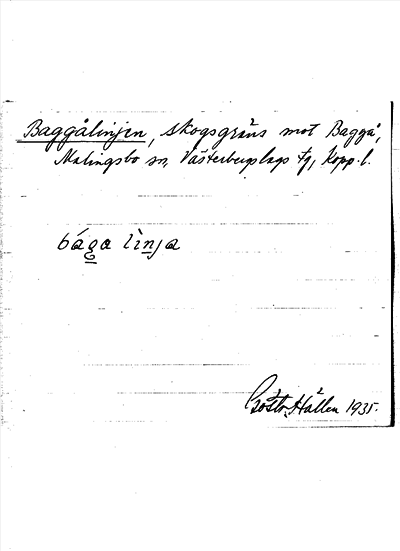 Baggålinjen, skogsgräns mot Baggå,
Malingsbo sn, Västerbergslags tg, Kopp. l.
bága lìnja
Gösta Hallen 1935.